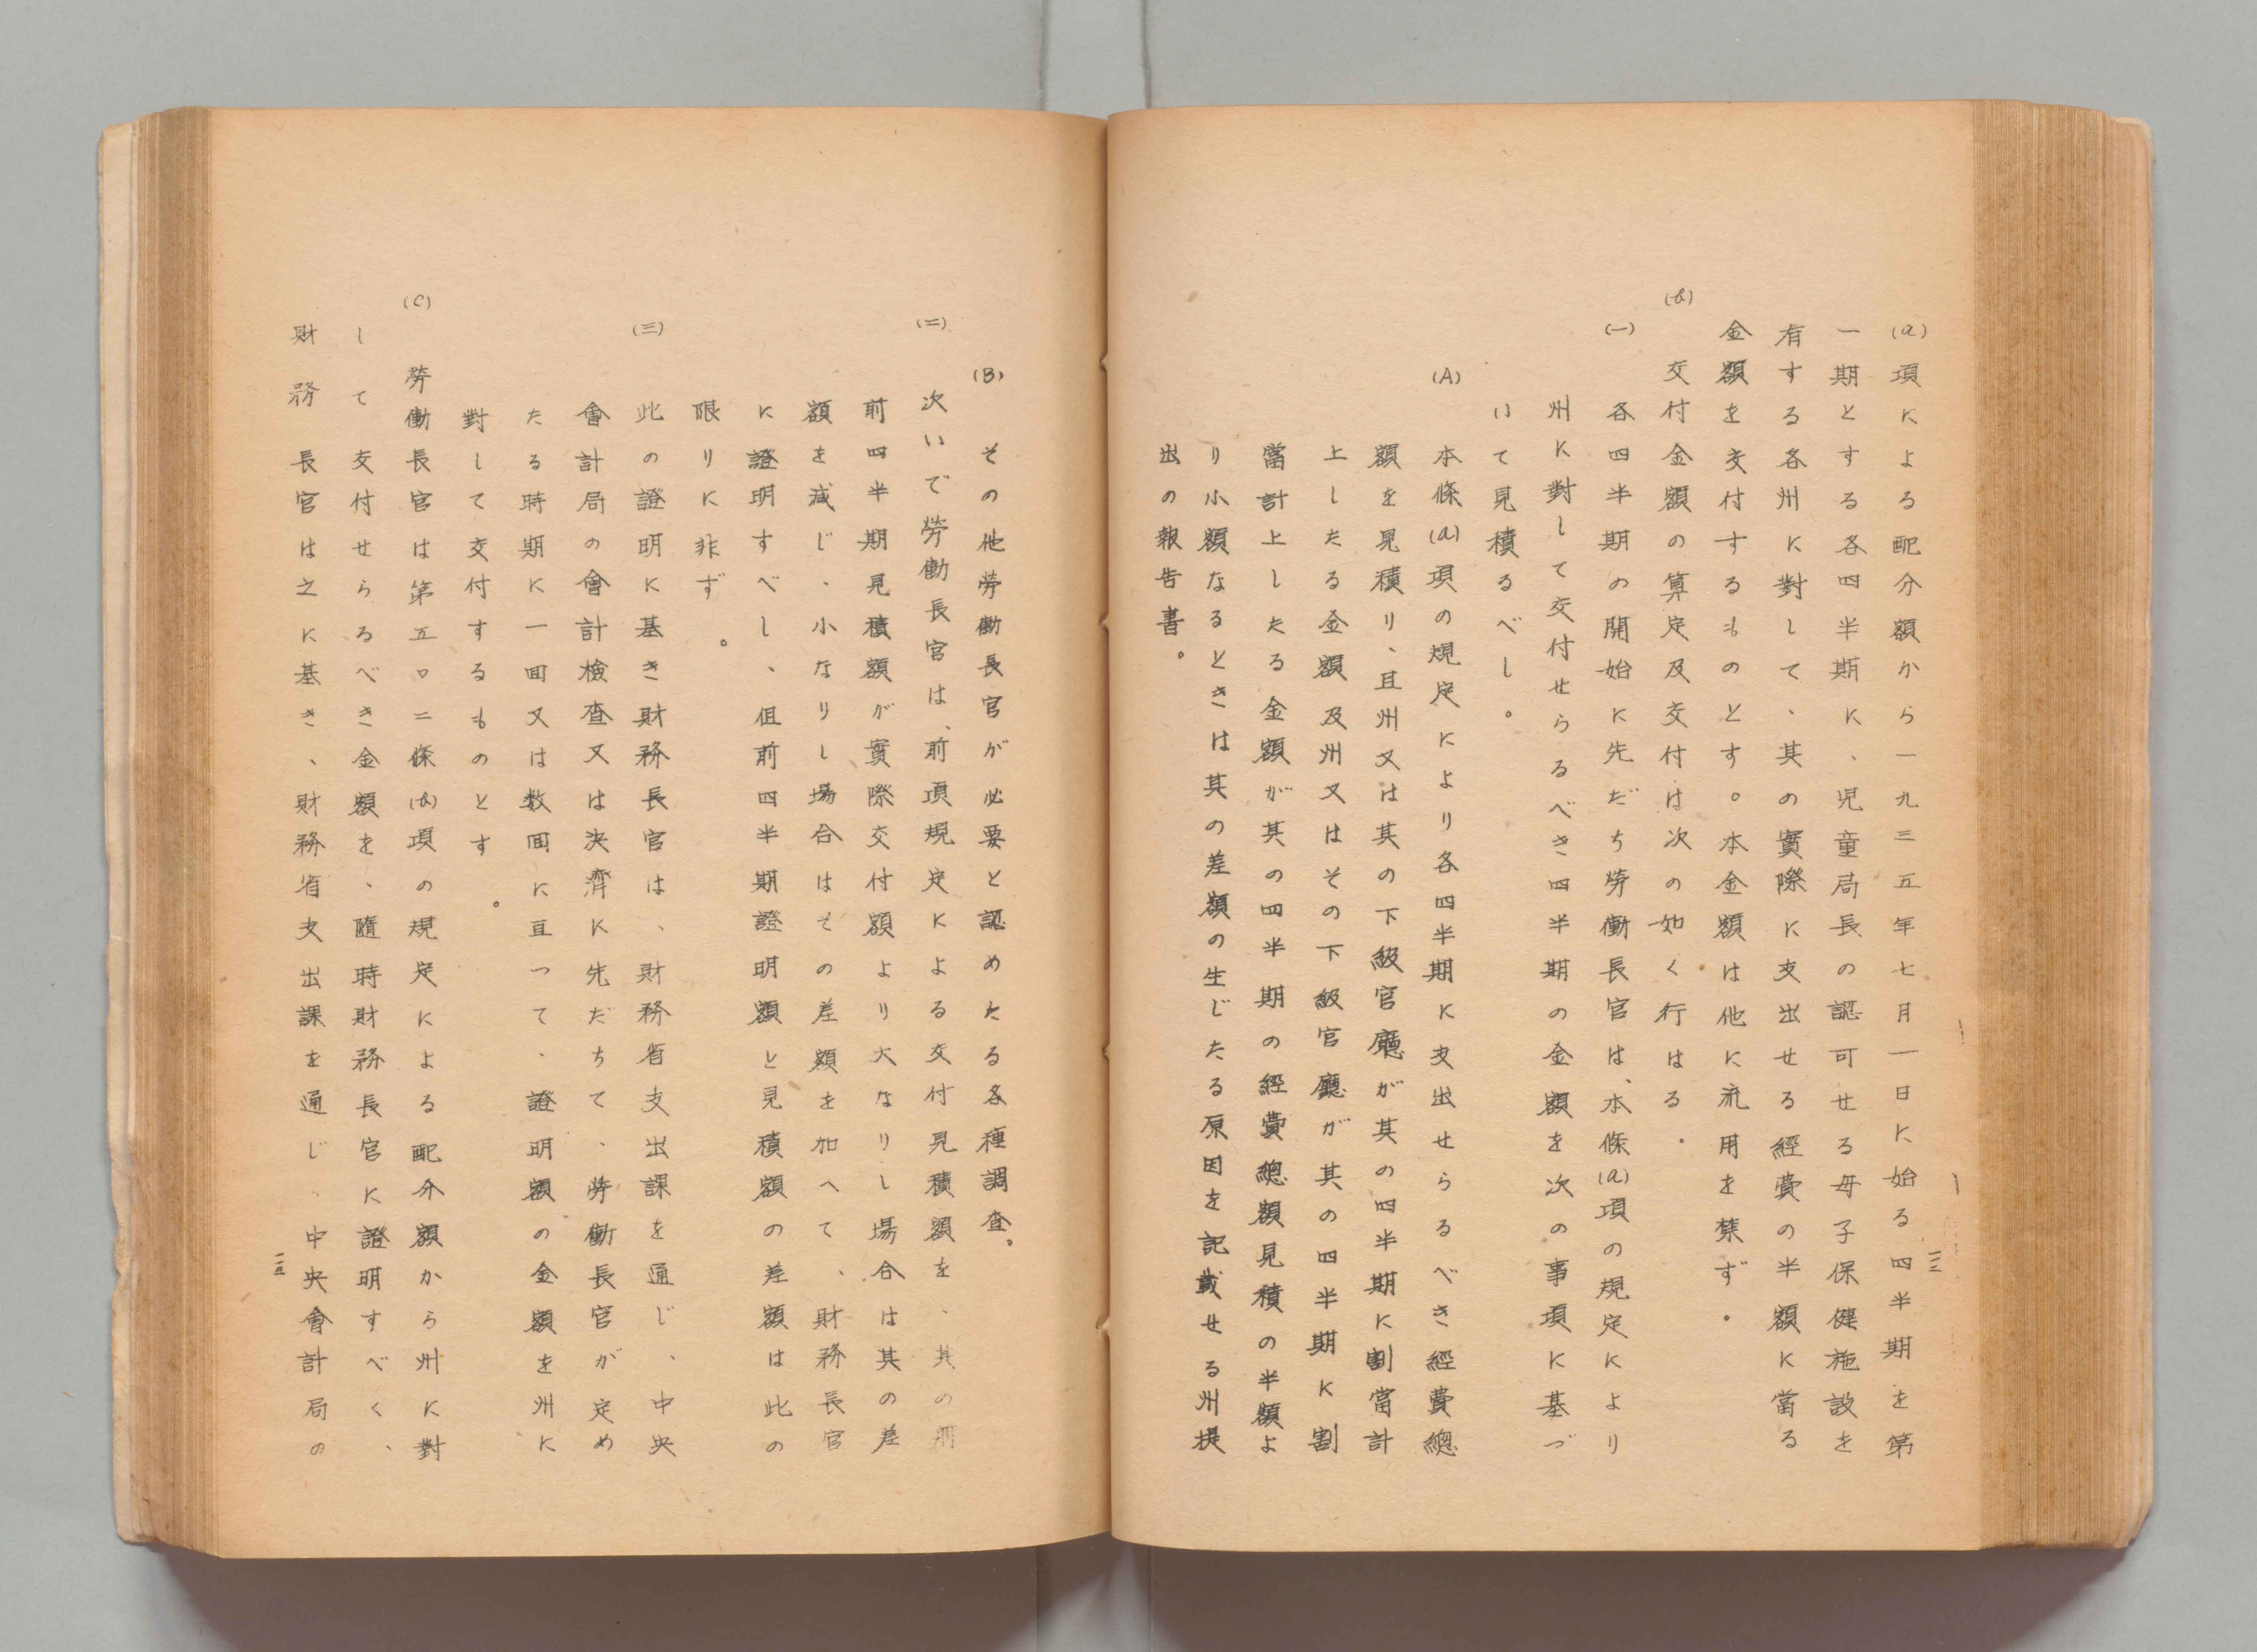 (a)項による配分額から一九三五年七月一日に始る四半期を第
一期とする各四半期に、児童局長の認可せる母子保健施設を
有する各州に對して、其の實際に支出せる経費の半額に當る
金額を交付するものとす。本金額は他に流用を禁ず。
(b) 交付金額の算定及交付は次の如く行はる。
(一) 各四半期の開始に先だち労働長官は、本條(a)項の規定により
州に對して交付せらるべき四半期の金額を次の事項に基づ
いて見積るべし。
(A) 本條(a)項の規定により各四半期に支出せらるべき經費總
額を見積り、且州又は其の下級官廳が其の四半期に割當計
上したる金額及州又はその下級官廳が其の四半期に割
當計上したる金額が其の四半期の經費總額見積の半額よ
り小額なるときは其の差額の生じたる原因を記載せる州提
出の報告書。
一二
(B) その他労働長官が必要と認めたる各種調査。
(二) 次いで労働長官は、前項規定による交付見積額を、其の
前四半期見積額が實際交付額より大なりし場合は其の差
額を減じ、小なりし場合はその差額を加へて、財務長官
に證明すべし、但前四半期證明額と見積額の差額は此の
限りに非ず。
(三) 此の證明に基き財務長官は、財務省支出課を通じ、中央
會計局の會計檢査又は決濟に先だちて、労働長官が定め
たる時期に一回又は数回に亘つて、證明額の金額を州に
對して交付するものとす。
(C) 労働長官は第五〇二條(b)項の規定による配分額から州に對
して交付せらるべき金額を、隨時財務長官に證明すべく、
財務長官は之に基き、財務省支出課を通じ、中央會計局の
一三